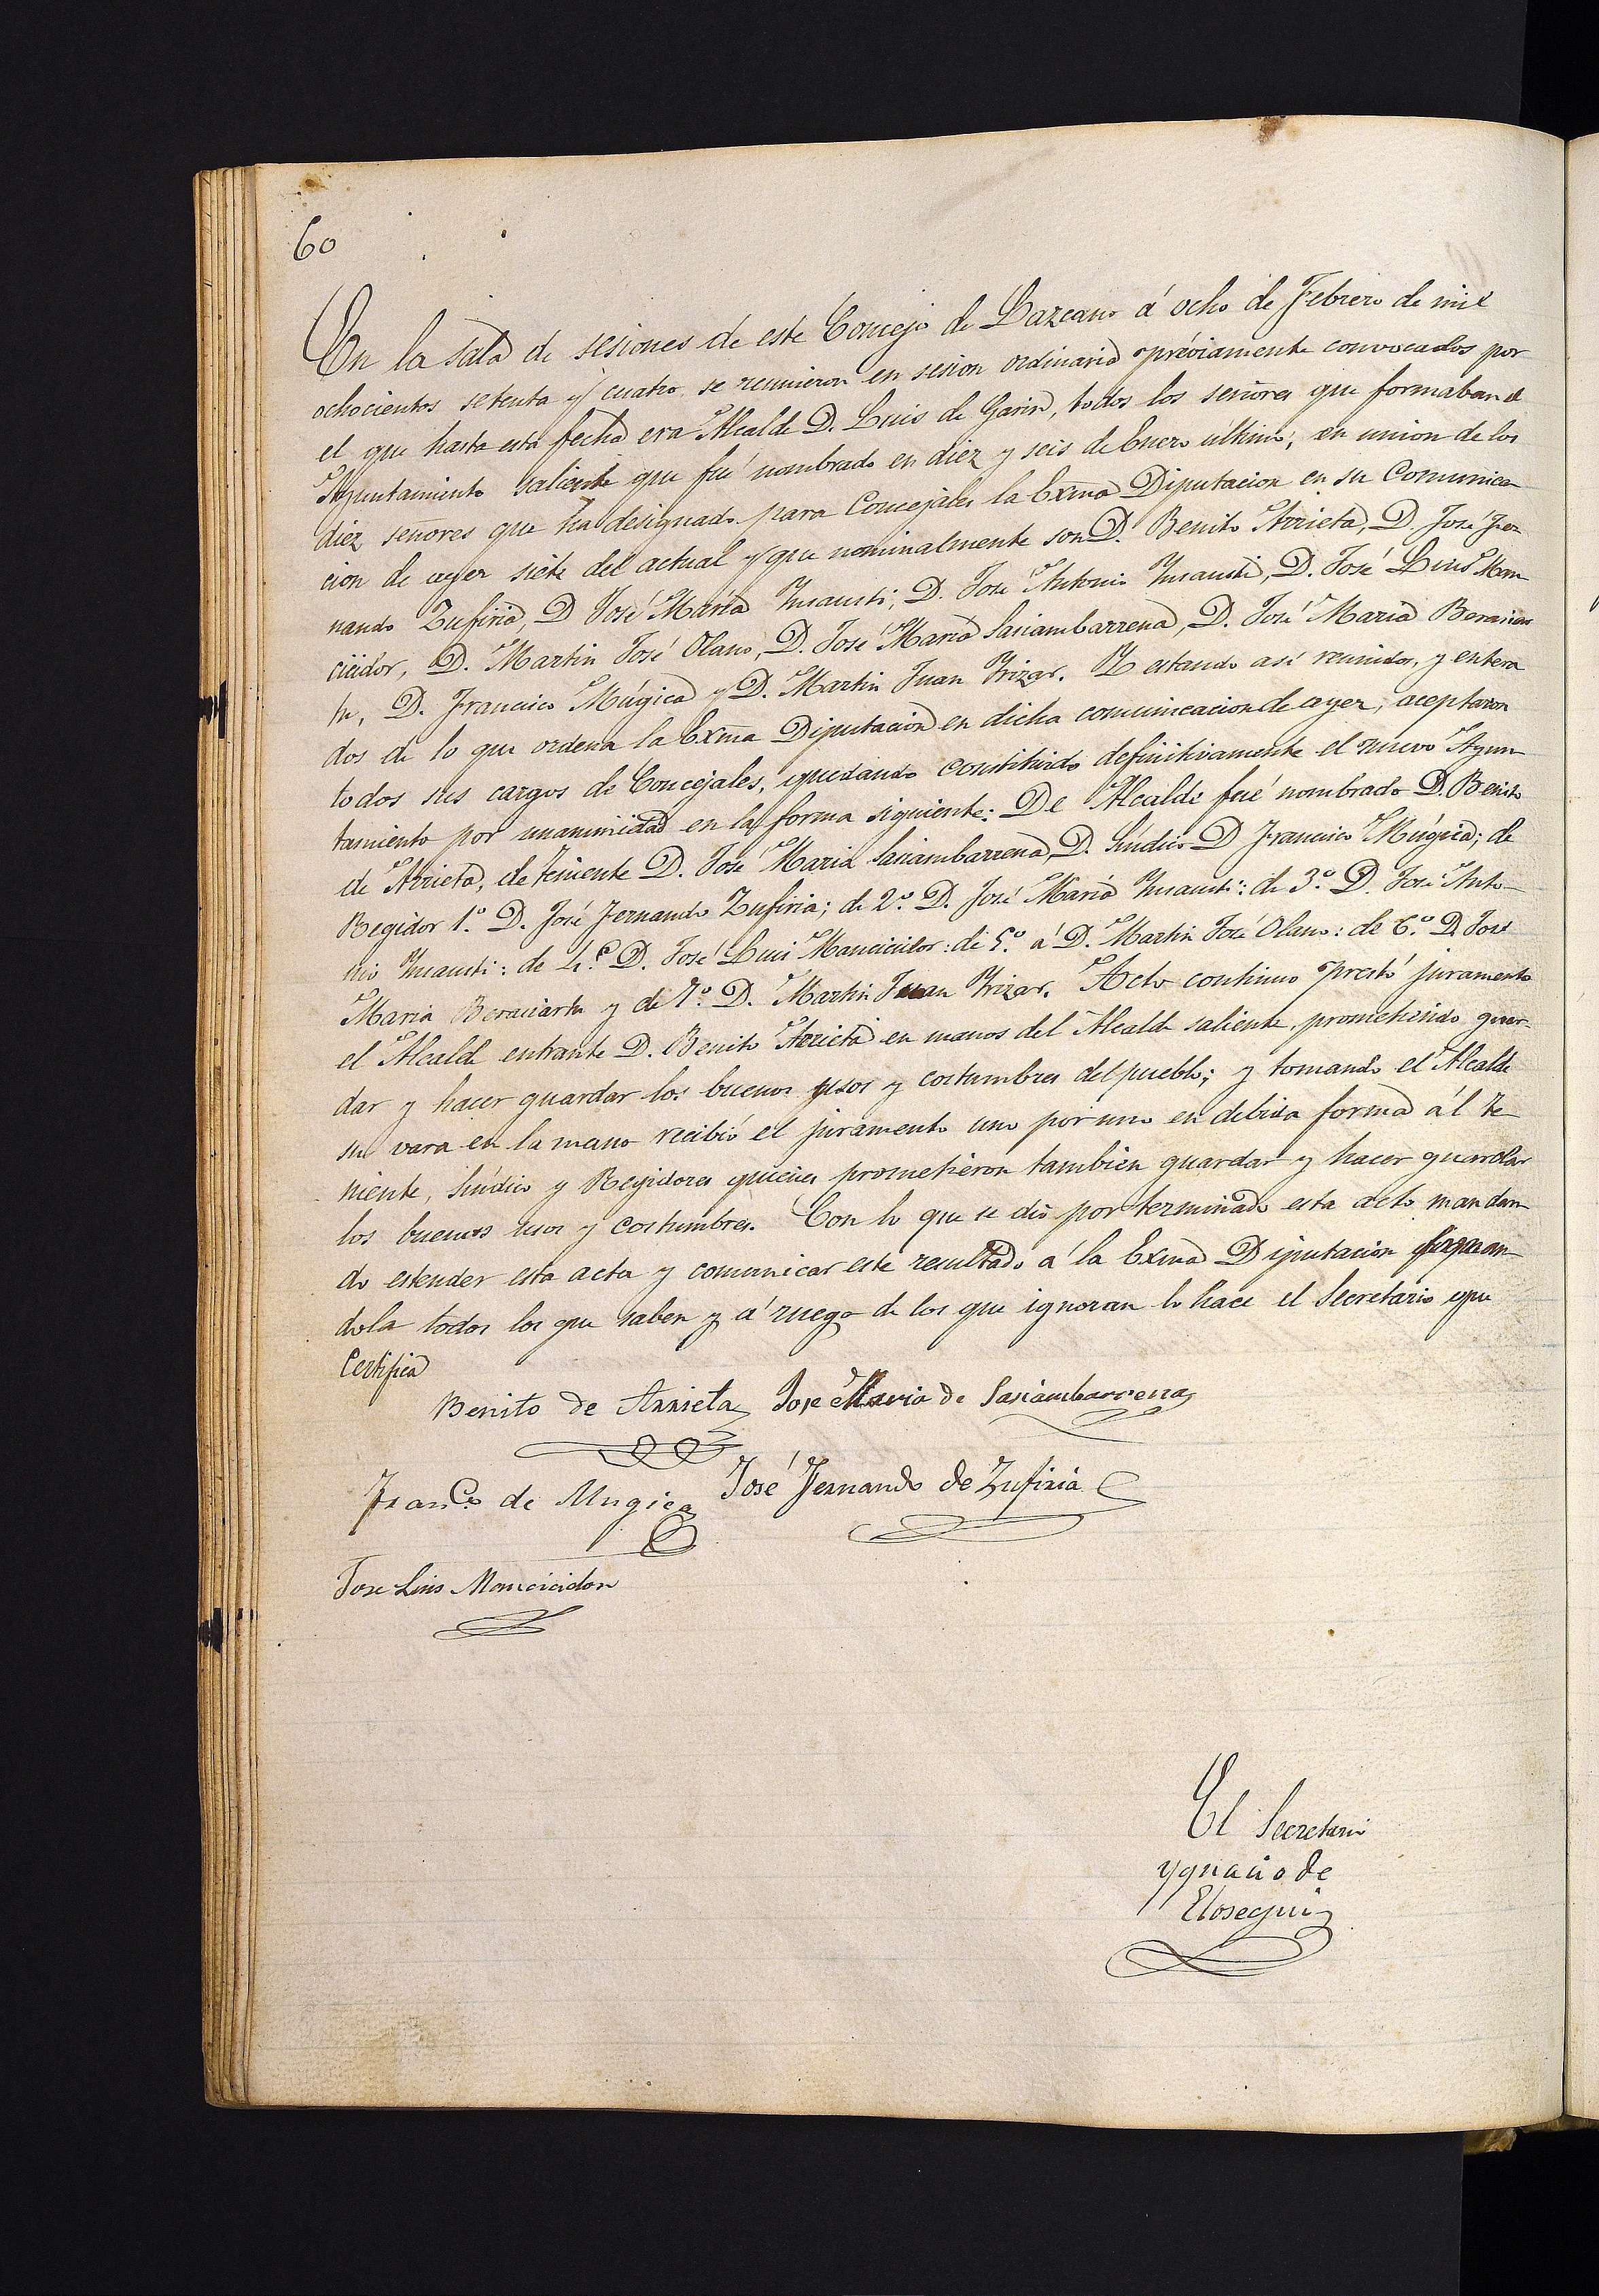 60
En la sala de sesiones de este Concejo de Lazcano á ocho de Febrero de mil
ochocientos setenta y cuatro se reunieron en sesion ordinaria préviamente convocados por
el que hasta esta fecha era Alcalde D. Luis de Garin, todos los señores que formaban el
Ayuntamiento saliente que fué nombrado en diez y seis de Enero último; en union de los
diez señores que ha designado para Concejales la Exma Diputacion en su Comunica
cion de ayer siete del actual y que nominalmente son D. Benito Arrieta, D. José Fer
nando Zufiria, D José María Insausti, D. José Antonio Insausti, D. José Luis Man
cicidor, D. Martin José Olano, D. José María Sasiambarrena, D. José María Beraciar
tu, D. Francisco Múgica y D. Martin Juan Yrizar. Y estando asi reunidos, y entera
dos de lo que ordena la Exma Diputacion en dicha comunicacion de ayer, aceptaron
todos sus cargos de Concejales, quedando constituido definitivamente el nuevo Ayun
tamiento por unanimidad en la forma siguiente: De Alcalde fué nombrado D. Benito
de Arrieta, de teniente D. José Maria Sasiambarrena, D. Síndico D Francisco Múgica; de
Regidor 1.º D. José Fernando Zufiria; de 2.º D. José María Insausti: de 3.º D. José Anto-
nio Insausti: de 4.º D. José Luis Mancicidor: de 5.º á D. Martin José Olano: de 6.º D José
Maria Beraciartu y de 7.º D. Martin Juan Yrizar. Acto continuo prestó juramento
el Alcalde entrante D. Benito Arrieta en manos del Alcalde saliente, prometiendo guar-
dar y hacer guardar los buenos usos y costumbres del pueblo; y tomando el Alcalde
su vara en la mano recibió el juramento uno por uno en debida forma ál te
niente, Síndico y Regidores quienes prometieron tambien guardar y hacer guardar
los buenos usos y costumbres. Con lo que se dió por terminado esta acto mandan
do estender esta acta y comunicar este resultado á la Exma Diputacion firman
dola todos los que saben y á ruego de los que ignoran lo hace el Secretario que
Certifica
Benito de Arrieta José Maria de Sasiambarrena
Franco de Mugica José Fernando de Zufiria
Jose Luis Mancicidor
El Secretario
Ygnacio de
Elosegui